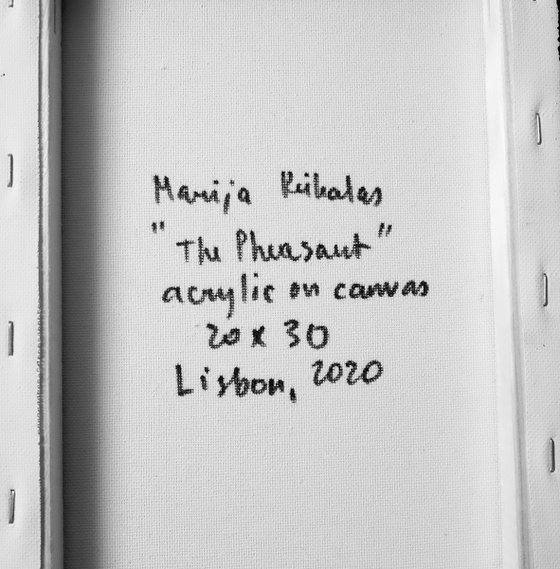 Marija
"The Pheasant"
acrylic on canvas
20 x 30
Lisbon, 2020